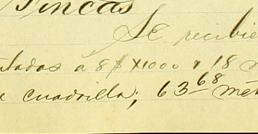 Fincas
Se recibie
ladas á 8 $ x 1000 o 18
cuadrilla; 63.68 met